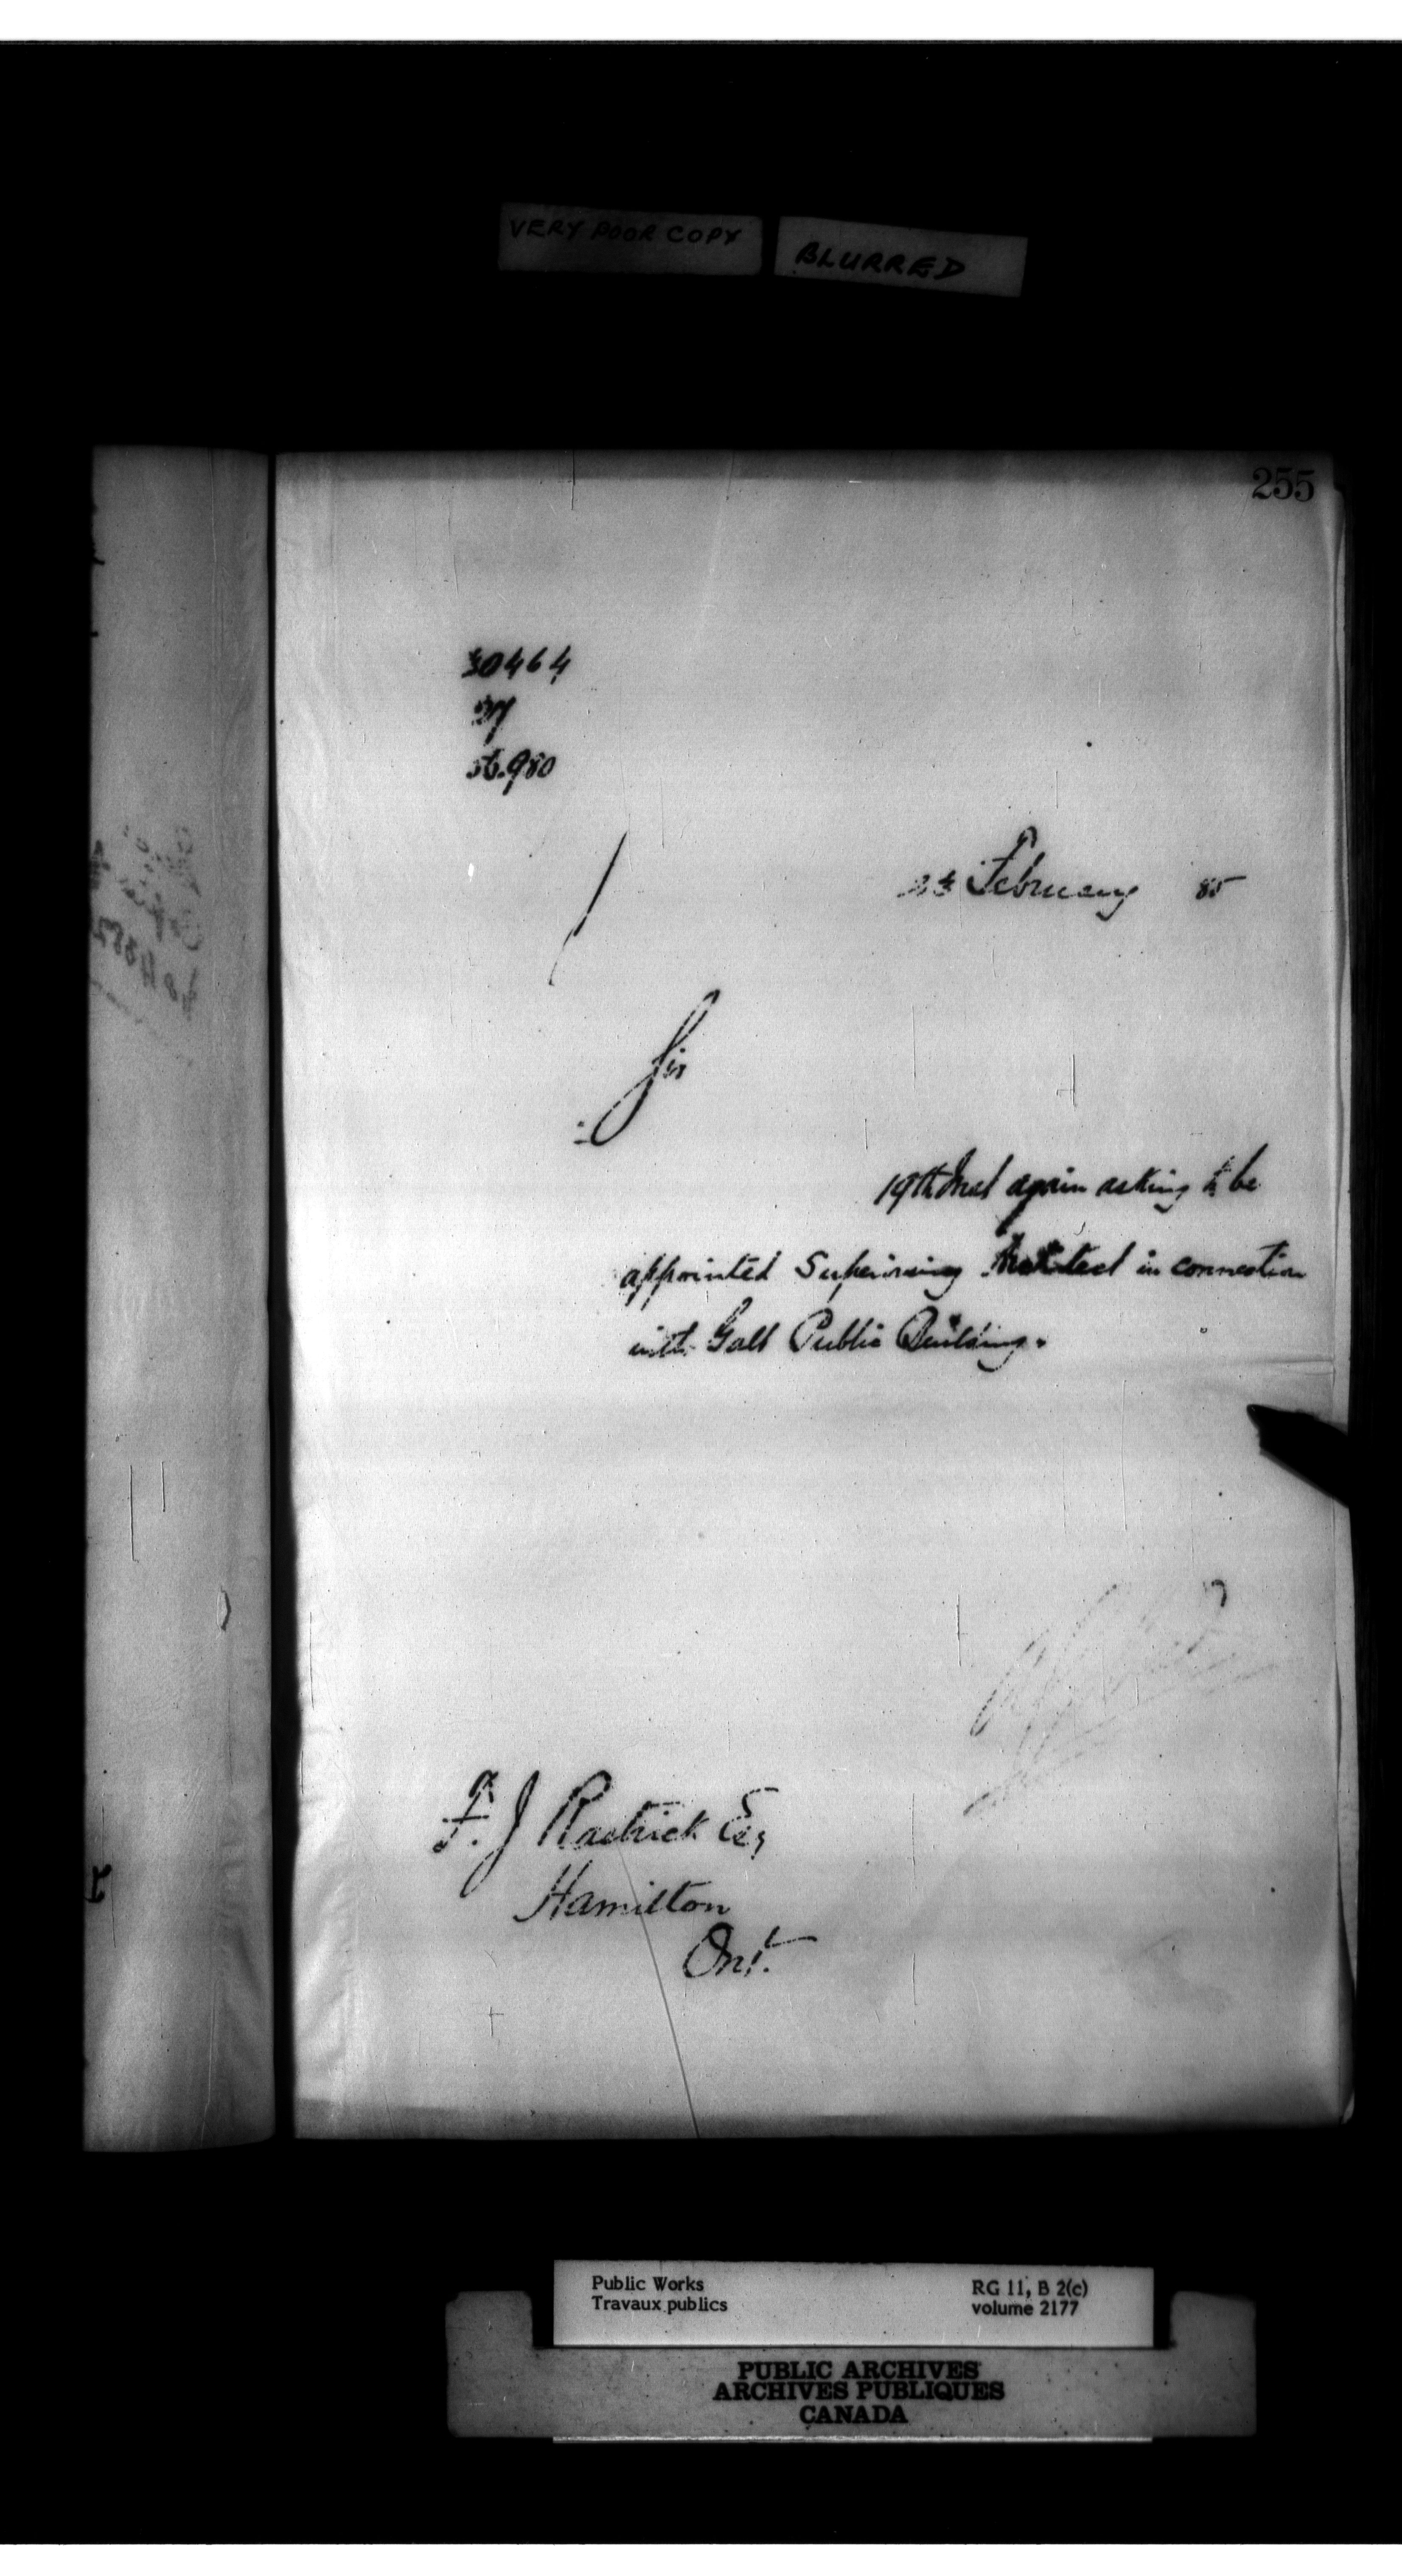 VERY POOR COPY
BLURRED
255
30464
56.980
February 85
Sir
19th Inst again asking to be
appointed Supervising Architect in connection
with Galt Public Building.
F. J Rastrick Esq
Hamilton
Ont.
Public Works
Travaux publics
RG 11, B 2(c)
volume 2177
PUBLIC ARCHIVES
ARCHIVES PUBLIQUES
CANADA